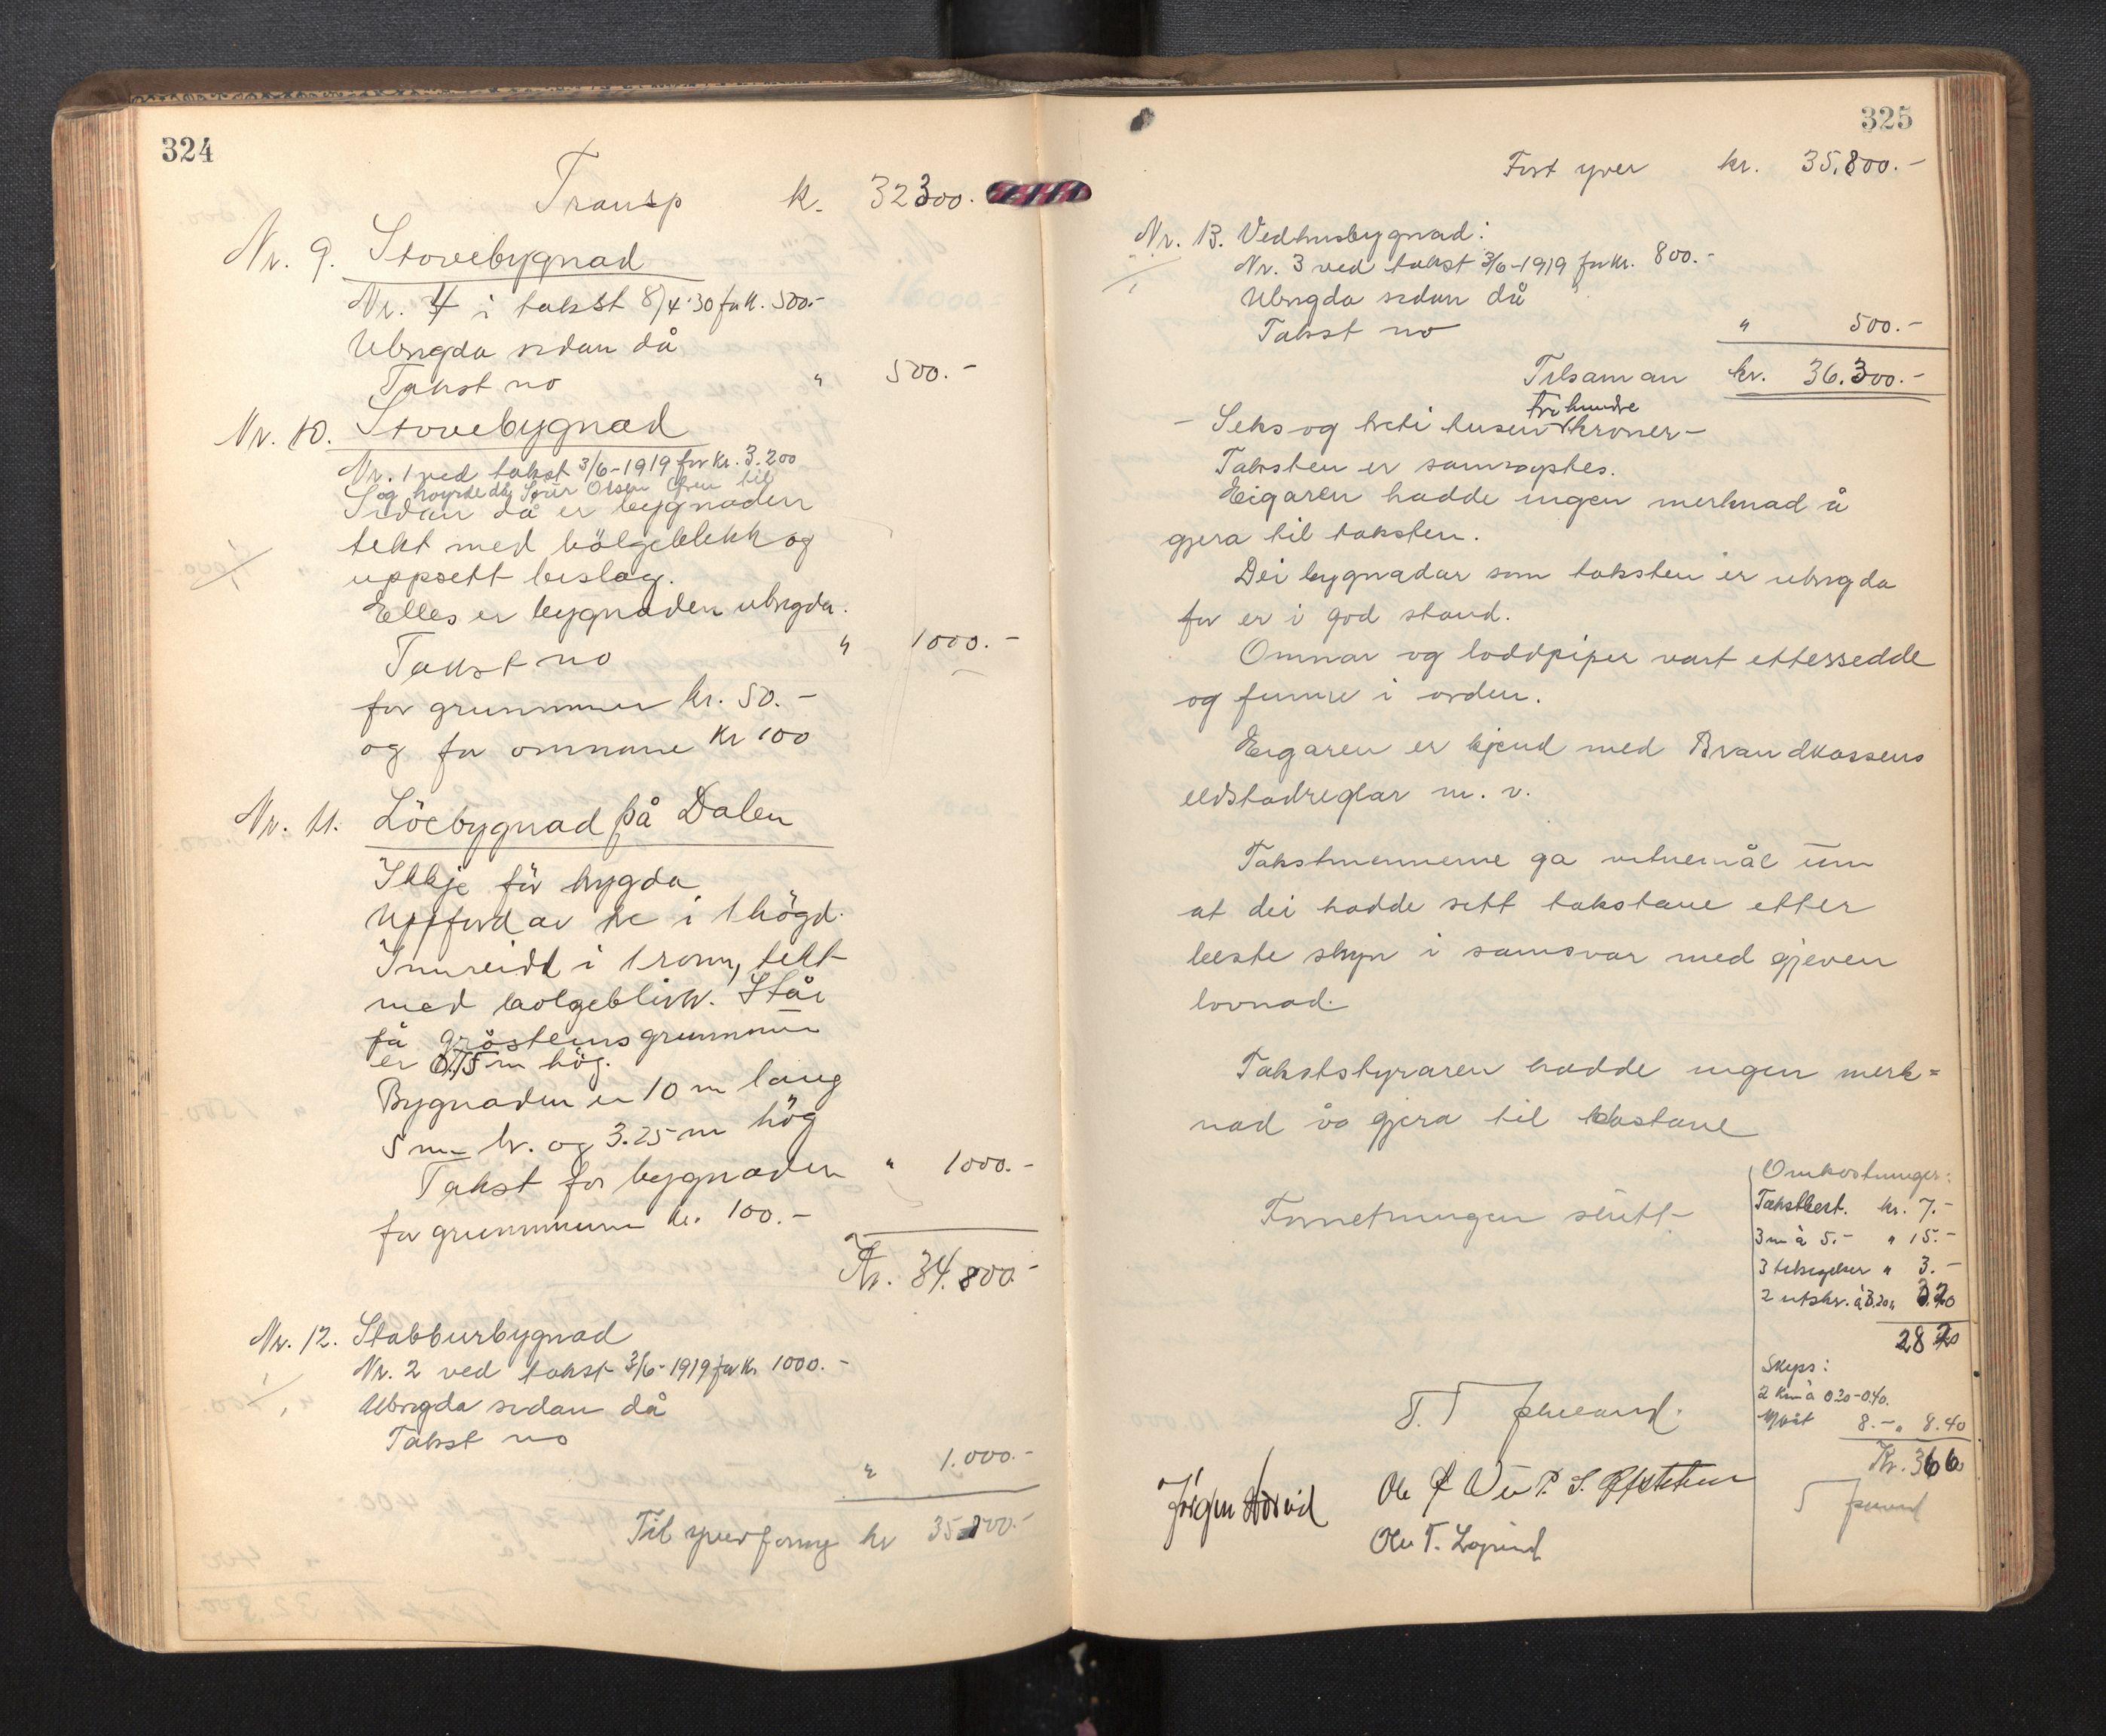 324
Transp k. 32300.
Nr. 9. Stovebygnad
Nr. 4 i takst 8/4 30 for k. 500.-
Ubrigda sidan då
Takst no " 500.-
Nr. 10. Stovebygnad
Nr. 1 ved takst 3/6-1919 for kr. 3.200
og høyrde då Olsen til
Sidan då er bygnaden
tekt med bölgeblekk og
uppsett beslag.
Elles er bygnaden ubrigda.
Takst no " 1000.-
for grunnmur kr. 50.-
og for omnane Kr 100
Nr. 11. Löebygnad på Dalen
Ikkje för bygda
Uppförd av tre i 1 högd.
Innreidd i 1 rom, tekt
med bolgeblikk. Står
på gråsteinsgrunnmur
er 0.75 m hög.
Bygnaden er 10 m lang
5 m br. og 3.25 m hög
Takst for bygnaden " 1000.-
for grunnmuren kr. 100.-
Kr. 34.800.-
Nr. 12. Stabbursbygnad
Nr. 2 ved takst 3/6-1919 for Kr. 1000.-
Ubrigda sidan då
Takst no
" 1.000.-
Til yverföring kr 35.800.-
325
Fört yver kr. 35.800.-
Nr. 13. Vedhusbygnad:
Nr. 3 ved takst 3/6-1919 for kr. 800.-
Ubrigda sidan då
Takst no " 500.-
Tilsaman kr. 36.300.-
tri hundre
- Seks og treti tusen kroner -
Taksten er samrøystes.
Eigaren hadde ingen merknad å
gjera til taksten.
Dei bygnadar som taksten er ubrigda
for er i god stand.
Omnar og loddpiper vart ettersedde
og funne i orden.
Eigaren er kjend med Brandkassens
eldstadreglar m. v.
Takstmennene ga vitnemål um
at dei hadde sett takstane etter
beste skyn i samsvar med gjeven
lovnad.
Takststyraren hadde ingen merk=
nad å gjera til takstane
Forretningen slutt
Omkostninger:
Takstbert. kr. 7.-
3 m à 5.- " 15.-
3 tilsegelser " 3.-
2 utskr. à " 3.20
28 20
Skyss:
2 Km à 0.20-0.40.
8.- " 8.40
Kr. 36 60
Jörgen
Ole T.